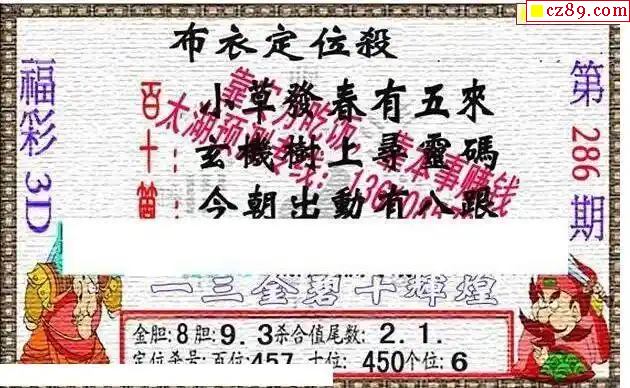 cz89.com
布衣定位殺
福彩3D
第286期
百:小草發春有五來
十:玄機樹上尋靈碼
今朝出動有八跟
靠实力吃饭 靠本事赚钱
太湖预测
一三全碧十輝煌
金胆:8胆:9.3杀合值尾数:2.1.
定位杀号:百位:457 十位:450个位:6